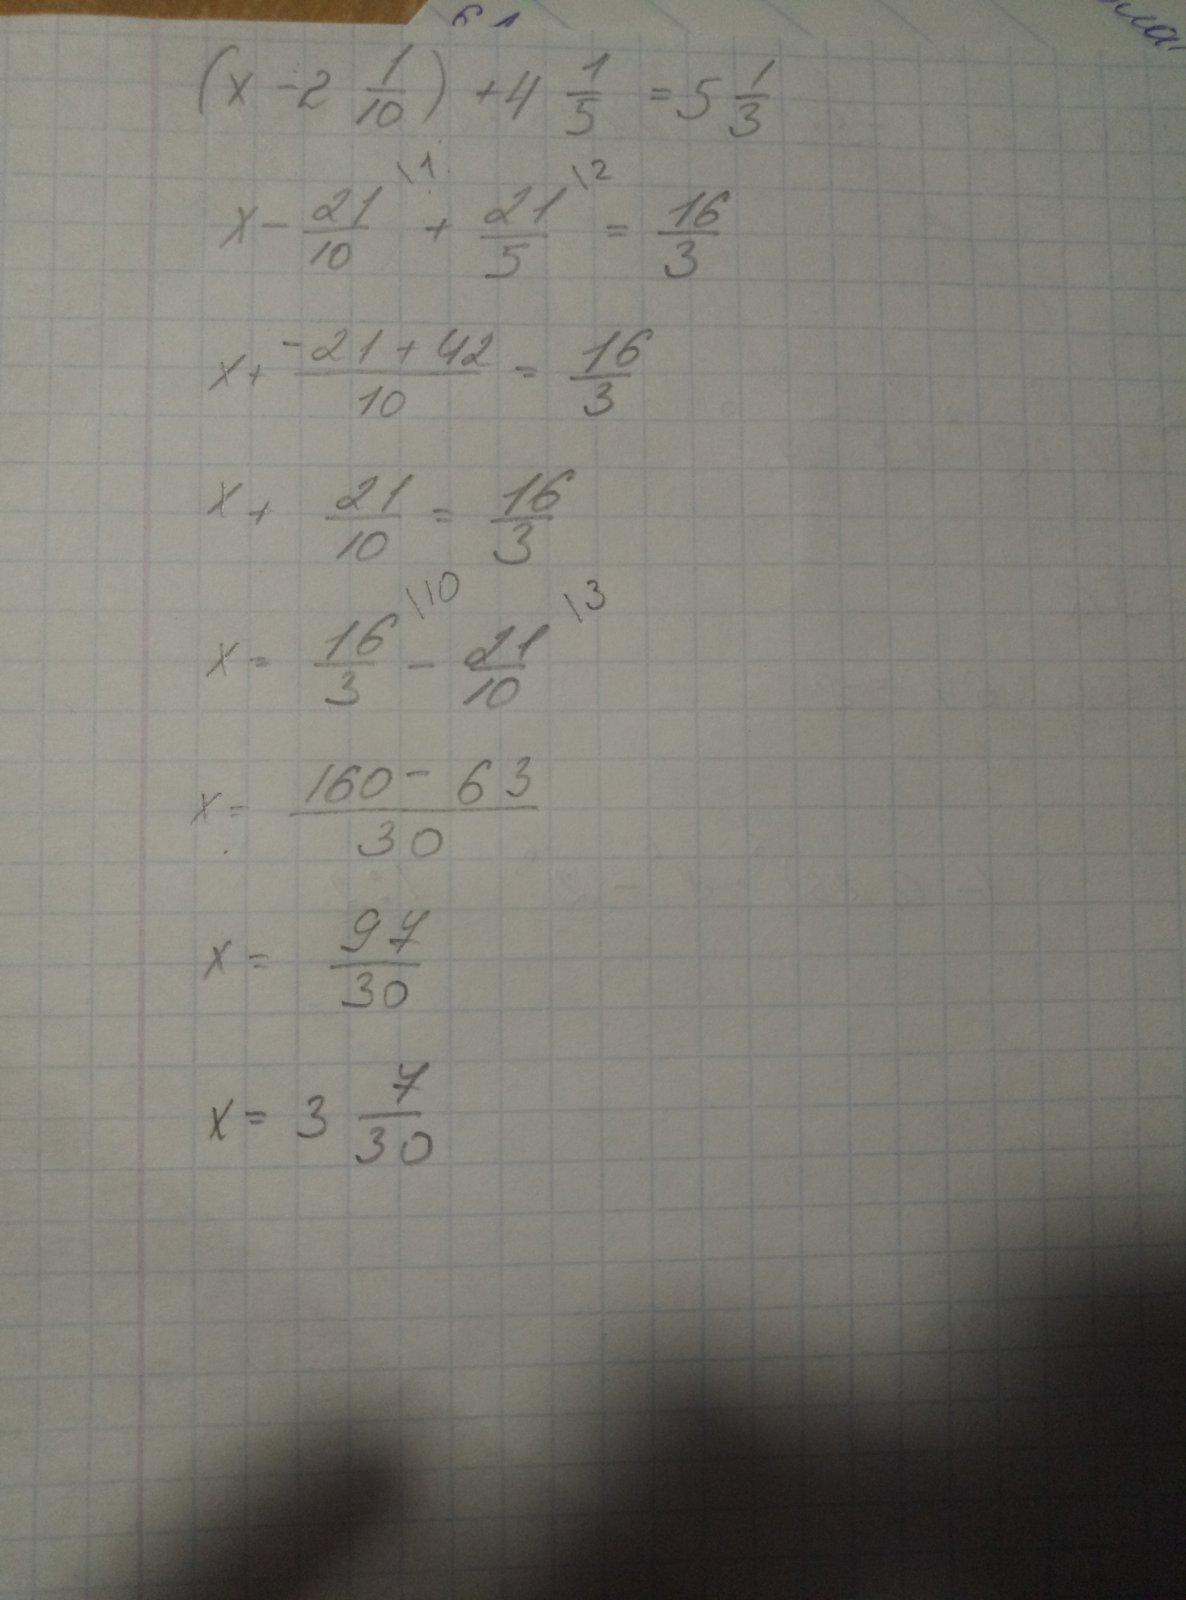 (x - 2 1/10) + 4 1/5 = 5 1/3
x - 21/10 \1 + 21/5 \2 = 16/3
x + -21 + 42/10 = 16/3
x + 21/10 = 16/3
x = 16/3 \10 - 21/10 \3
x = 160 - 63/30
x = 97/30
x = 3 7/30